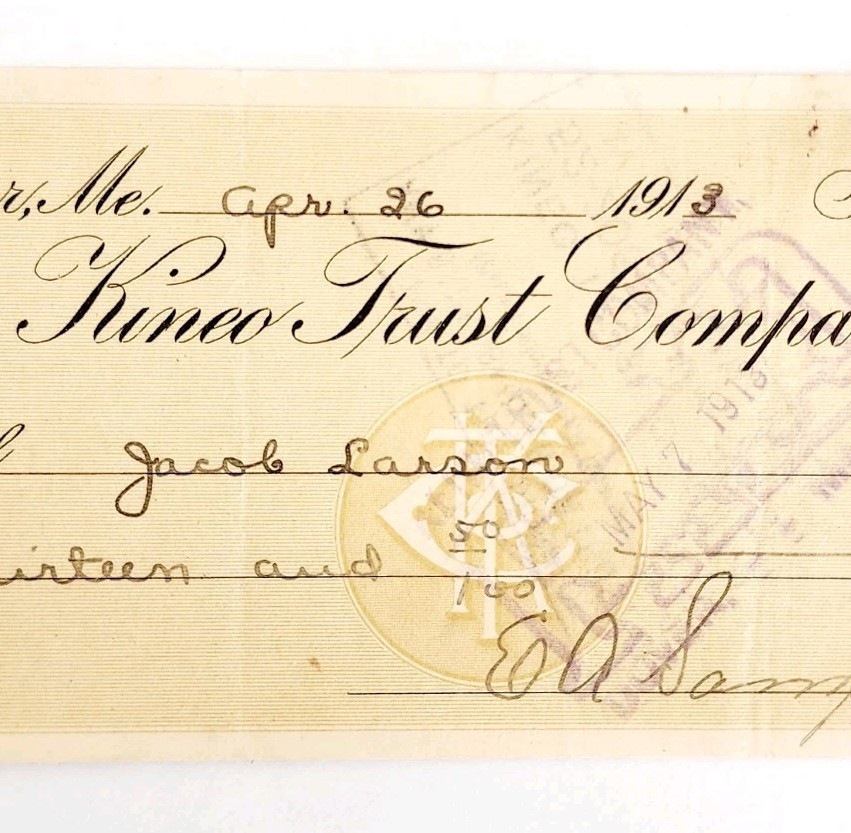 r, Me. Apr. 26 1913
Kineo Trust Compa
Jacob Larson
irteen and 50/100
MAY 7 1913
E A Samp